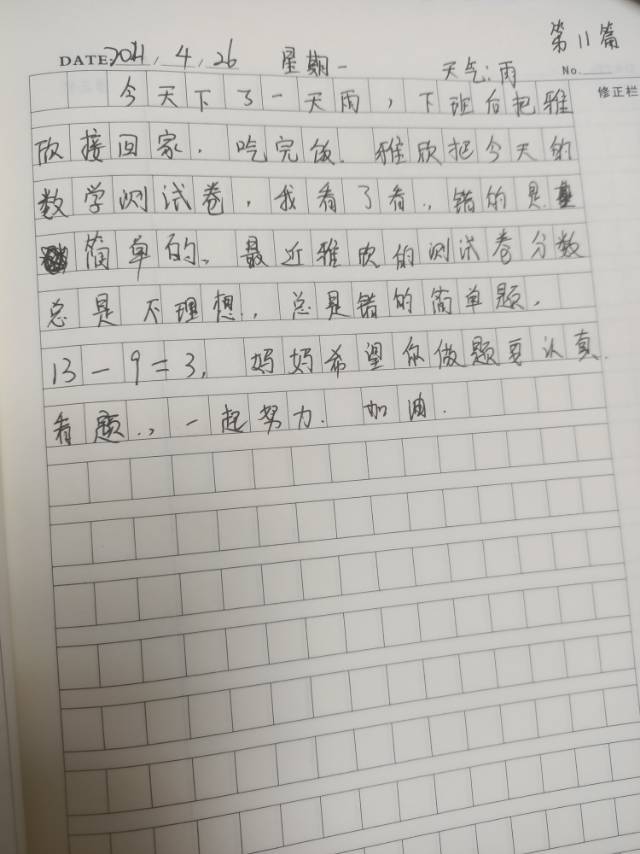 第11篇
DATE: 2021.4.26 星期一 天气:雨 No.
修正栏
今天下了一天雨,下班后把雅
欣接回家.吃完饭.雅欣把今天的
数学测试卷,我看了看.,错的是
简单的。最近雅欣的测试卷分数
总是不理想,总是错的简单题.
13-9=3,妈妈希望你做题要认真
看题.,一起努力.加油.